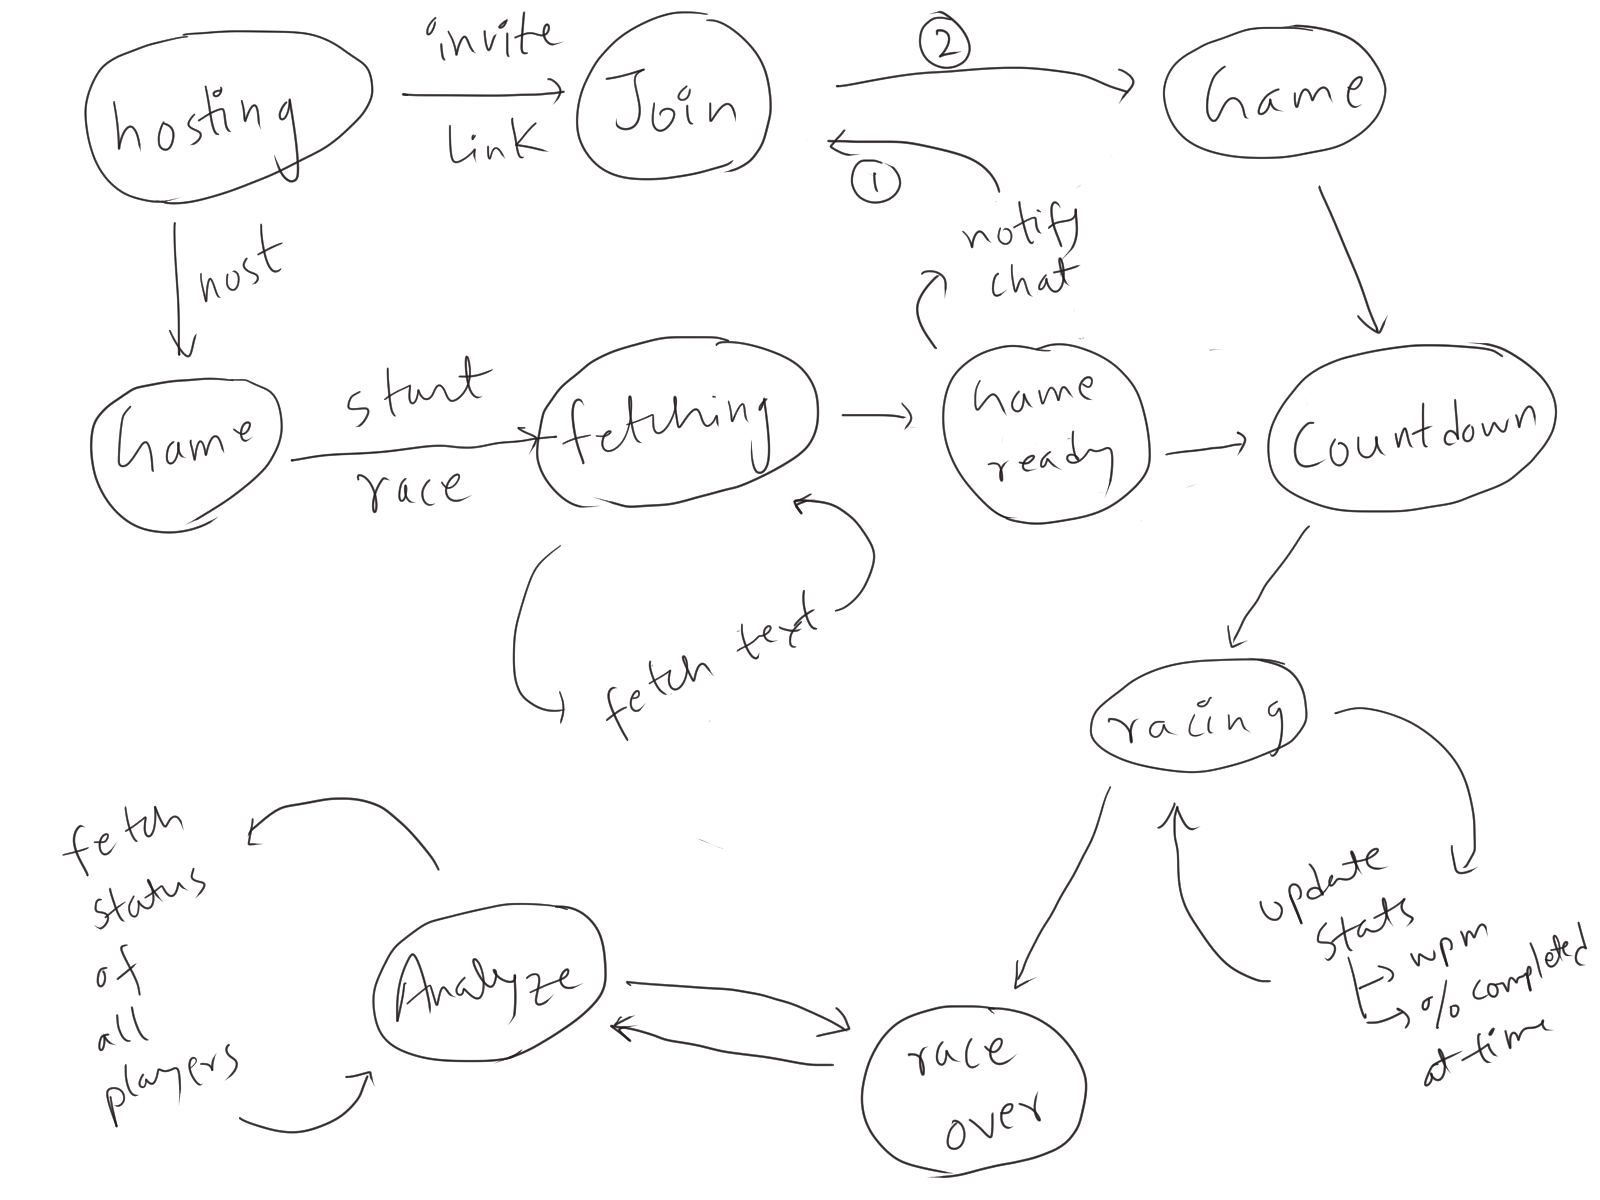 hosting
invite
Link
Join
2
Game
1
notify
chat
host
Game
start
race
fetching
Game
ready
Countdown
fetch text
racing
update
stats
wpm
% completed
at time
fetch
status
of
all
players
Analyze
race
over